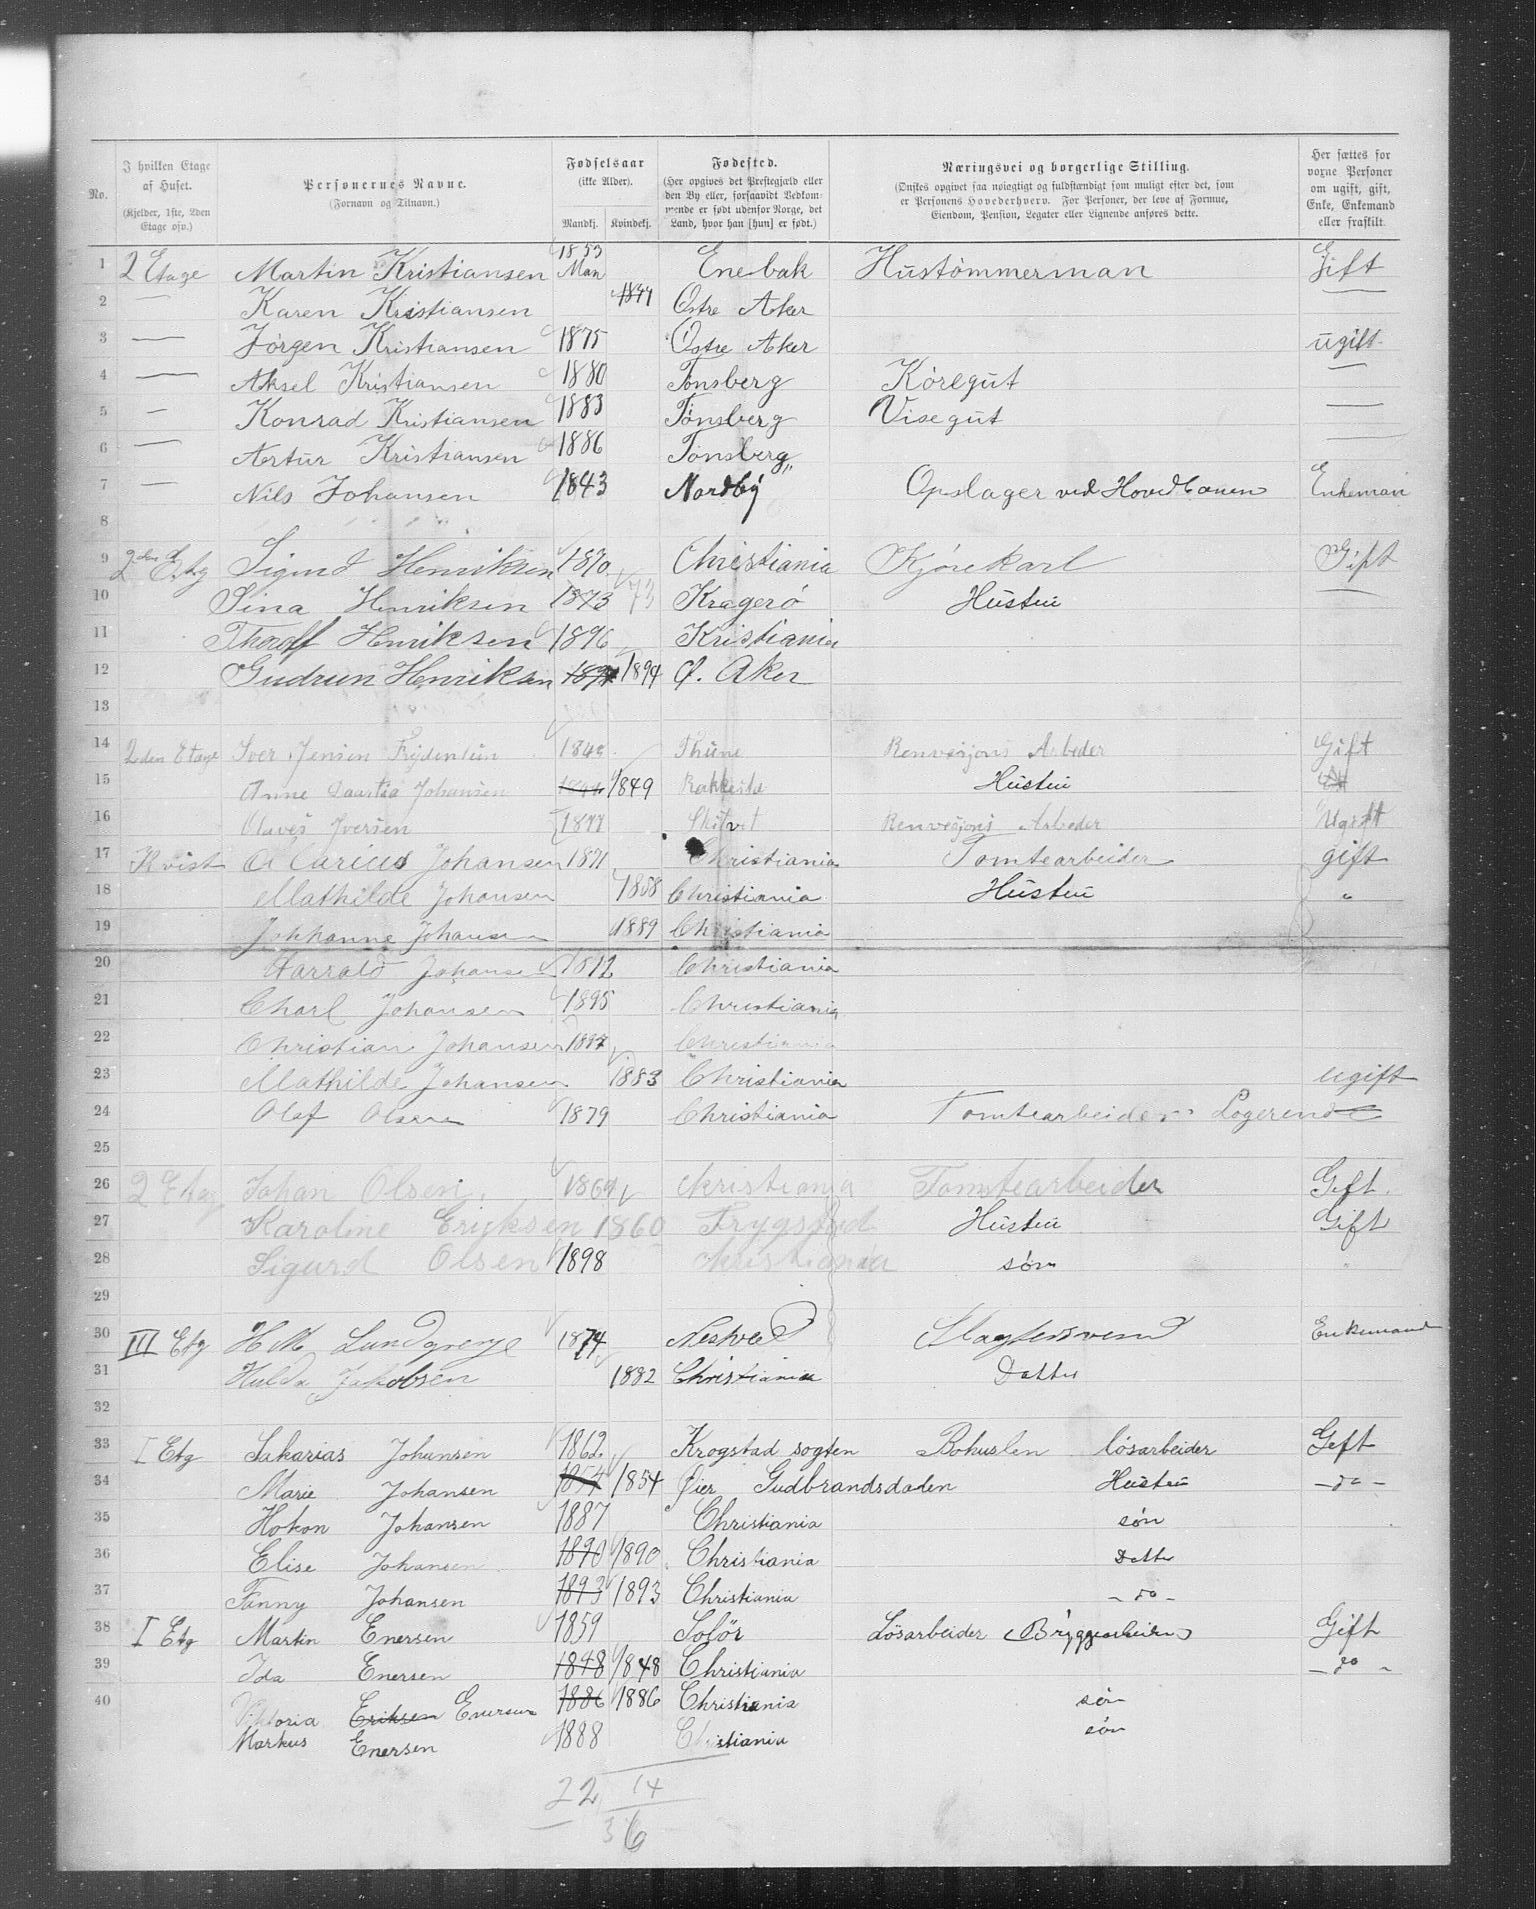 No.
I hvilken Etage af Huset.
(Kjelder, 1ste, 2den Etage osv.)
Personernes Navne.
(Fornavn og Tilnavn.)
Fødselsaar
(ikke Alder).
Mandkj. Kvindekj.
Fødested.
(Her opgives det Prestegjæld eller den By eller, forsaavidt Vedkommende er født udenfor Norge, det Land, hvor han [hun] er født.)
Næringsvei og borgerlige Stilling.
(Ønskes opgivet saa nøiagtigt og fuldstændigt som muligt efter det, som er Personens Hovederhverv. For Personer, der leve af Formue, Eiendom, Pension, Legater eller Lignende anføres dette.
Her sættes for voxne Personer om ugift, gift, Enke, Enkemand eller fraskilt.
1 2 Etage Martin Kristiansen 1853 Man Enebak Hustømmerman Gift
2 — Karen Kristiansen Ostre Aker —
3 — Jørgen Kristiansen 1875 Østre Aker ugift
4 — Aksel Kristiansen 1880 Tønsberg Køregut —
5 — Konrad Kristiansen 1883 Tønsberg Visegut —
6 — Artur Kristiansen 1886 Tønsberg —
7 — Nils Johansen 1843 Nordby Opslager ved Hovedbanen Enkeman
8
9 2den Etg Sigurd Henriksen 1870 Christiania Kjørekarl Gift
10 Sina Henriksen 1873 73 Kragerø Hustru —
11 Thoralf Henriksen 1896 Kristiania
12 Gudrun Henriksen 1894 Ø. Aker
13
14 2den Etage Iver Jensen Frydenlun Thune Renvasjons Arbeder Gift
15 Anne Johansen 1849 Rakkestad Hustru
16 Olaves Iversen 1877 Renvasjons Arbeder Ugift
17 Kvist Johansen 1871 Christiania Tomtearbeider gift
18 Mathilde Johansen 1858 Christiania Hustru "
19 Johanne Johansen 1889 Christiania
20 Harrald Johansen Christiania
21 Charl Johansen 1895 Christiania
22 Christian Johansen 1897 Christiania
23 Mathilde Johansen 1883 Christiania ugift
24 Olaf Olsen 1879 Christiania Tomtearbeider Logerende
25
26 2 Etag Johan Olsen 1869 Christiania Tomtearbeider Gift
27 Karoline Eriksen 1860 Trygstad Hustru Gift
28 Sigurd Olsen 1898 Christiania søn "
29
30 III Etg H M 1874 Nestved Slagtersvend Enkemand
31 Hulda Jakobsen 1882 Christiania Datter
32
33 I Etg Sakarias Johansen 1862 Krogstad sogten Bohuslen løsarbeider Gift
34 Marie Johansen 1854 1854 Øier Gudbrandsdaden Hustru — do —
35 Hokon Johansen 1887 Christiania søn
36 Elise Johansen 1890 1890 Christiania Datter
37 Fanny Johansen 1893 1893 Christiania — do —
38 I Etg Martin Enersen 1859 Solør Løsarbeider (Bryggearbeider) Gift
39 Ida Enersen 1848 1848 Christiania — do —
40 Viktoria Eriksen Enersen 1886 1886 Christiania søn
Markus Enersen 1888 Christiania søn
22 14
36